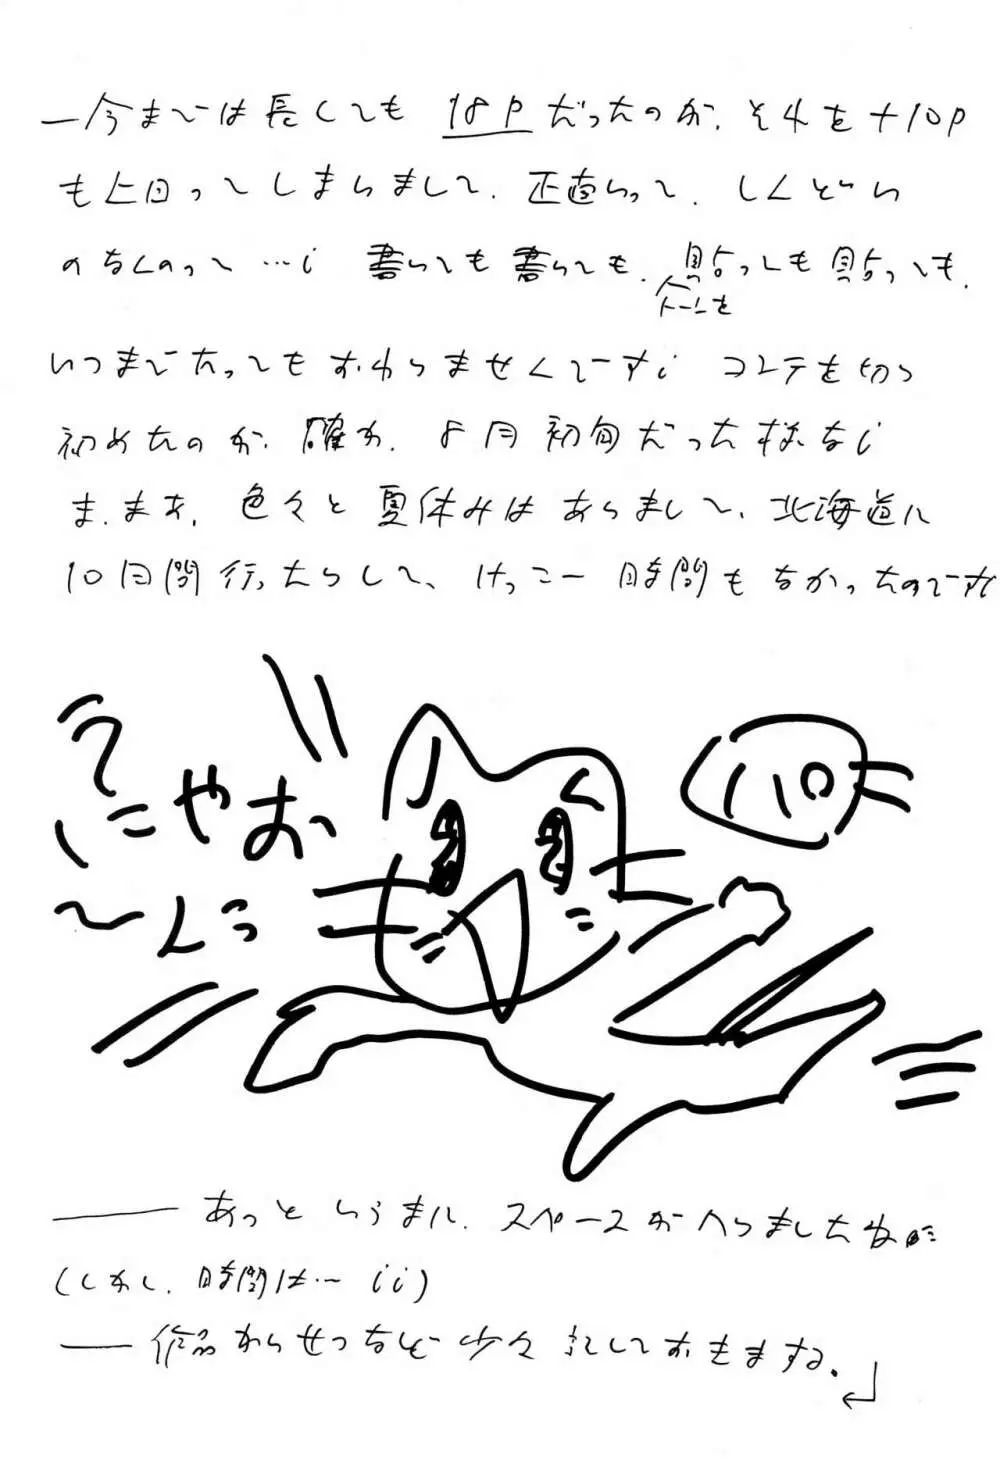 ―今までは長くても 18Pだったのが、それを+10P
も上回ってしまいまして、正直いって、しんどい
のなんのって…； 書いても書いても、貼っても貼っても、
トーンを
いつまでたってもおわりませんでーす； コンテを切り
初めたのが、確か、8月初旬だった様な；
ま、まあ、色々と夏休みはありまして、北海道に
10日間行ったりして、けっこー時間もなかったのでーす
にゃお
〜んっ
―― あっというまに、スペースがへりましたね
(しかし、時間は… ；；)
―― 作品かいせつなど少々記しておきまする。